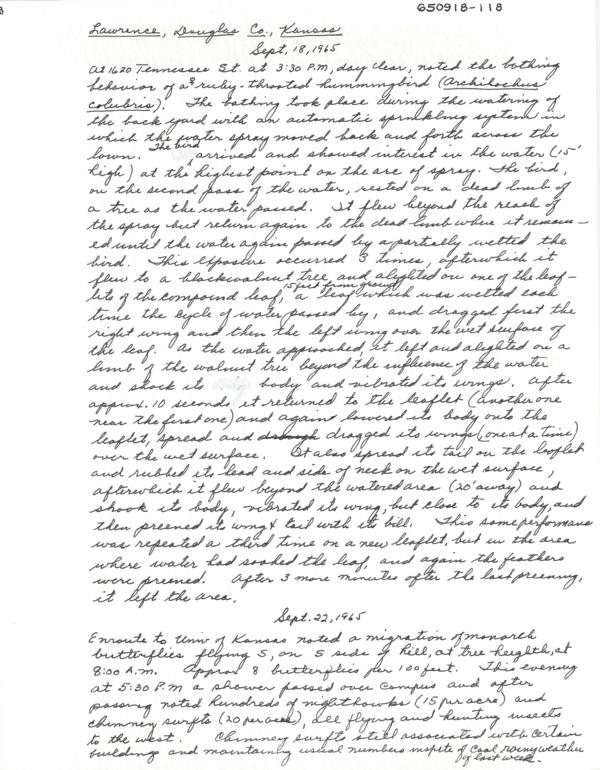 650918-118
Lawrence, Douglas Co., Kansas
Sept. 18, 1965
At 1620 Tennessee St. at 3:30 P.M, day clear, noted the bathing
behavior of a ♀ ruby-throated hummingbird (Archilochus
colubris). The bathing took place during the watering of
the back yard with an automatic sprinkling system in
which the water spray moved back and forth across the
lawn. The bird arrived and showed interest in the water (15'
high) at the highest point on the arc of spray. The bird,
on the second pass of the water, rested on a dead limb of
a tree as the water passed. It flew beyond the reach of
the spray but return again to the dead limb where it remain-
ed until the water again passed by & partially wetted the
bird. This exposure occurred 3 times, afterwhich it
flew to a blackwalnut tree, and alighted on one of the leaf-
lets of the compound leaf, 15 feet from ground, a leaf which was wetted each
time the cycle of water passed by, and dragged first the
right wing and then the left wing over the wet surface of
the leaf. As the water approached, it left and alighted on a
limb of the walnut tree beyond the influence of the water
and shook its body and vibrated its wings. After
approx. 10 seconds it returned to the leaflet (another one
near the first one) and again lowered its body onto the
leaflet, spread and dragged its wings (one at a time)
over the wet surface. It also spread its tail on the leaflet
and rubbed its head and side of neck on the wet surface,
afterwhich it flew beyond the watered area (20' away) and
shook its body, vibrated its wing, but close to its body, and
then preened its wing & tail with its bill. This same performance
was repeated a third time on a new leaflet, but in the area
where water had soaked the leaf, and again the feathers
were preened. After 3 more minutes after the last preening,
it left the area.
Sept. 22, 1965
Enroute to Univ of Kansas noted a migration of monarch
butterflies flying S, on S side of hill, at tree heighth, at
8:00 A.M. Approx 8 butterflies per 100 feet. This evening
at 5:30 P.M a shower passed over campus and after
passing noted hundreds of nighthawks (15 per acre) and
chimney swifts (20 per acre), all flying and hunting insects
to the west. Chimney swifts still associated with certain
buildings and maintaining usual numbers inspite of cool rainy weather
of last week.